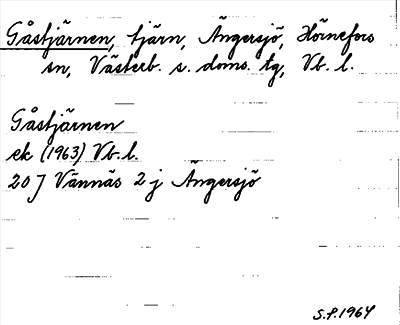 Gåstjärnen, tjärn, Ängersjö, Hörnefors
sn, Västerb. s. doms. tg, Vb. l.
Gåstjärnen
ek (1963) Vb. l.
20 J Vännäs 2 j Ängersjö
S.P. 1964